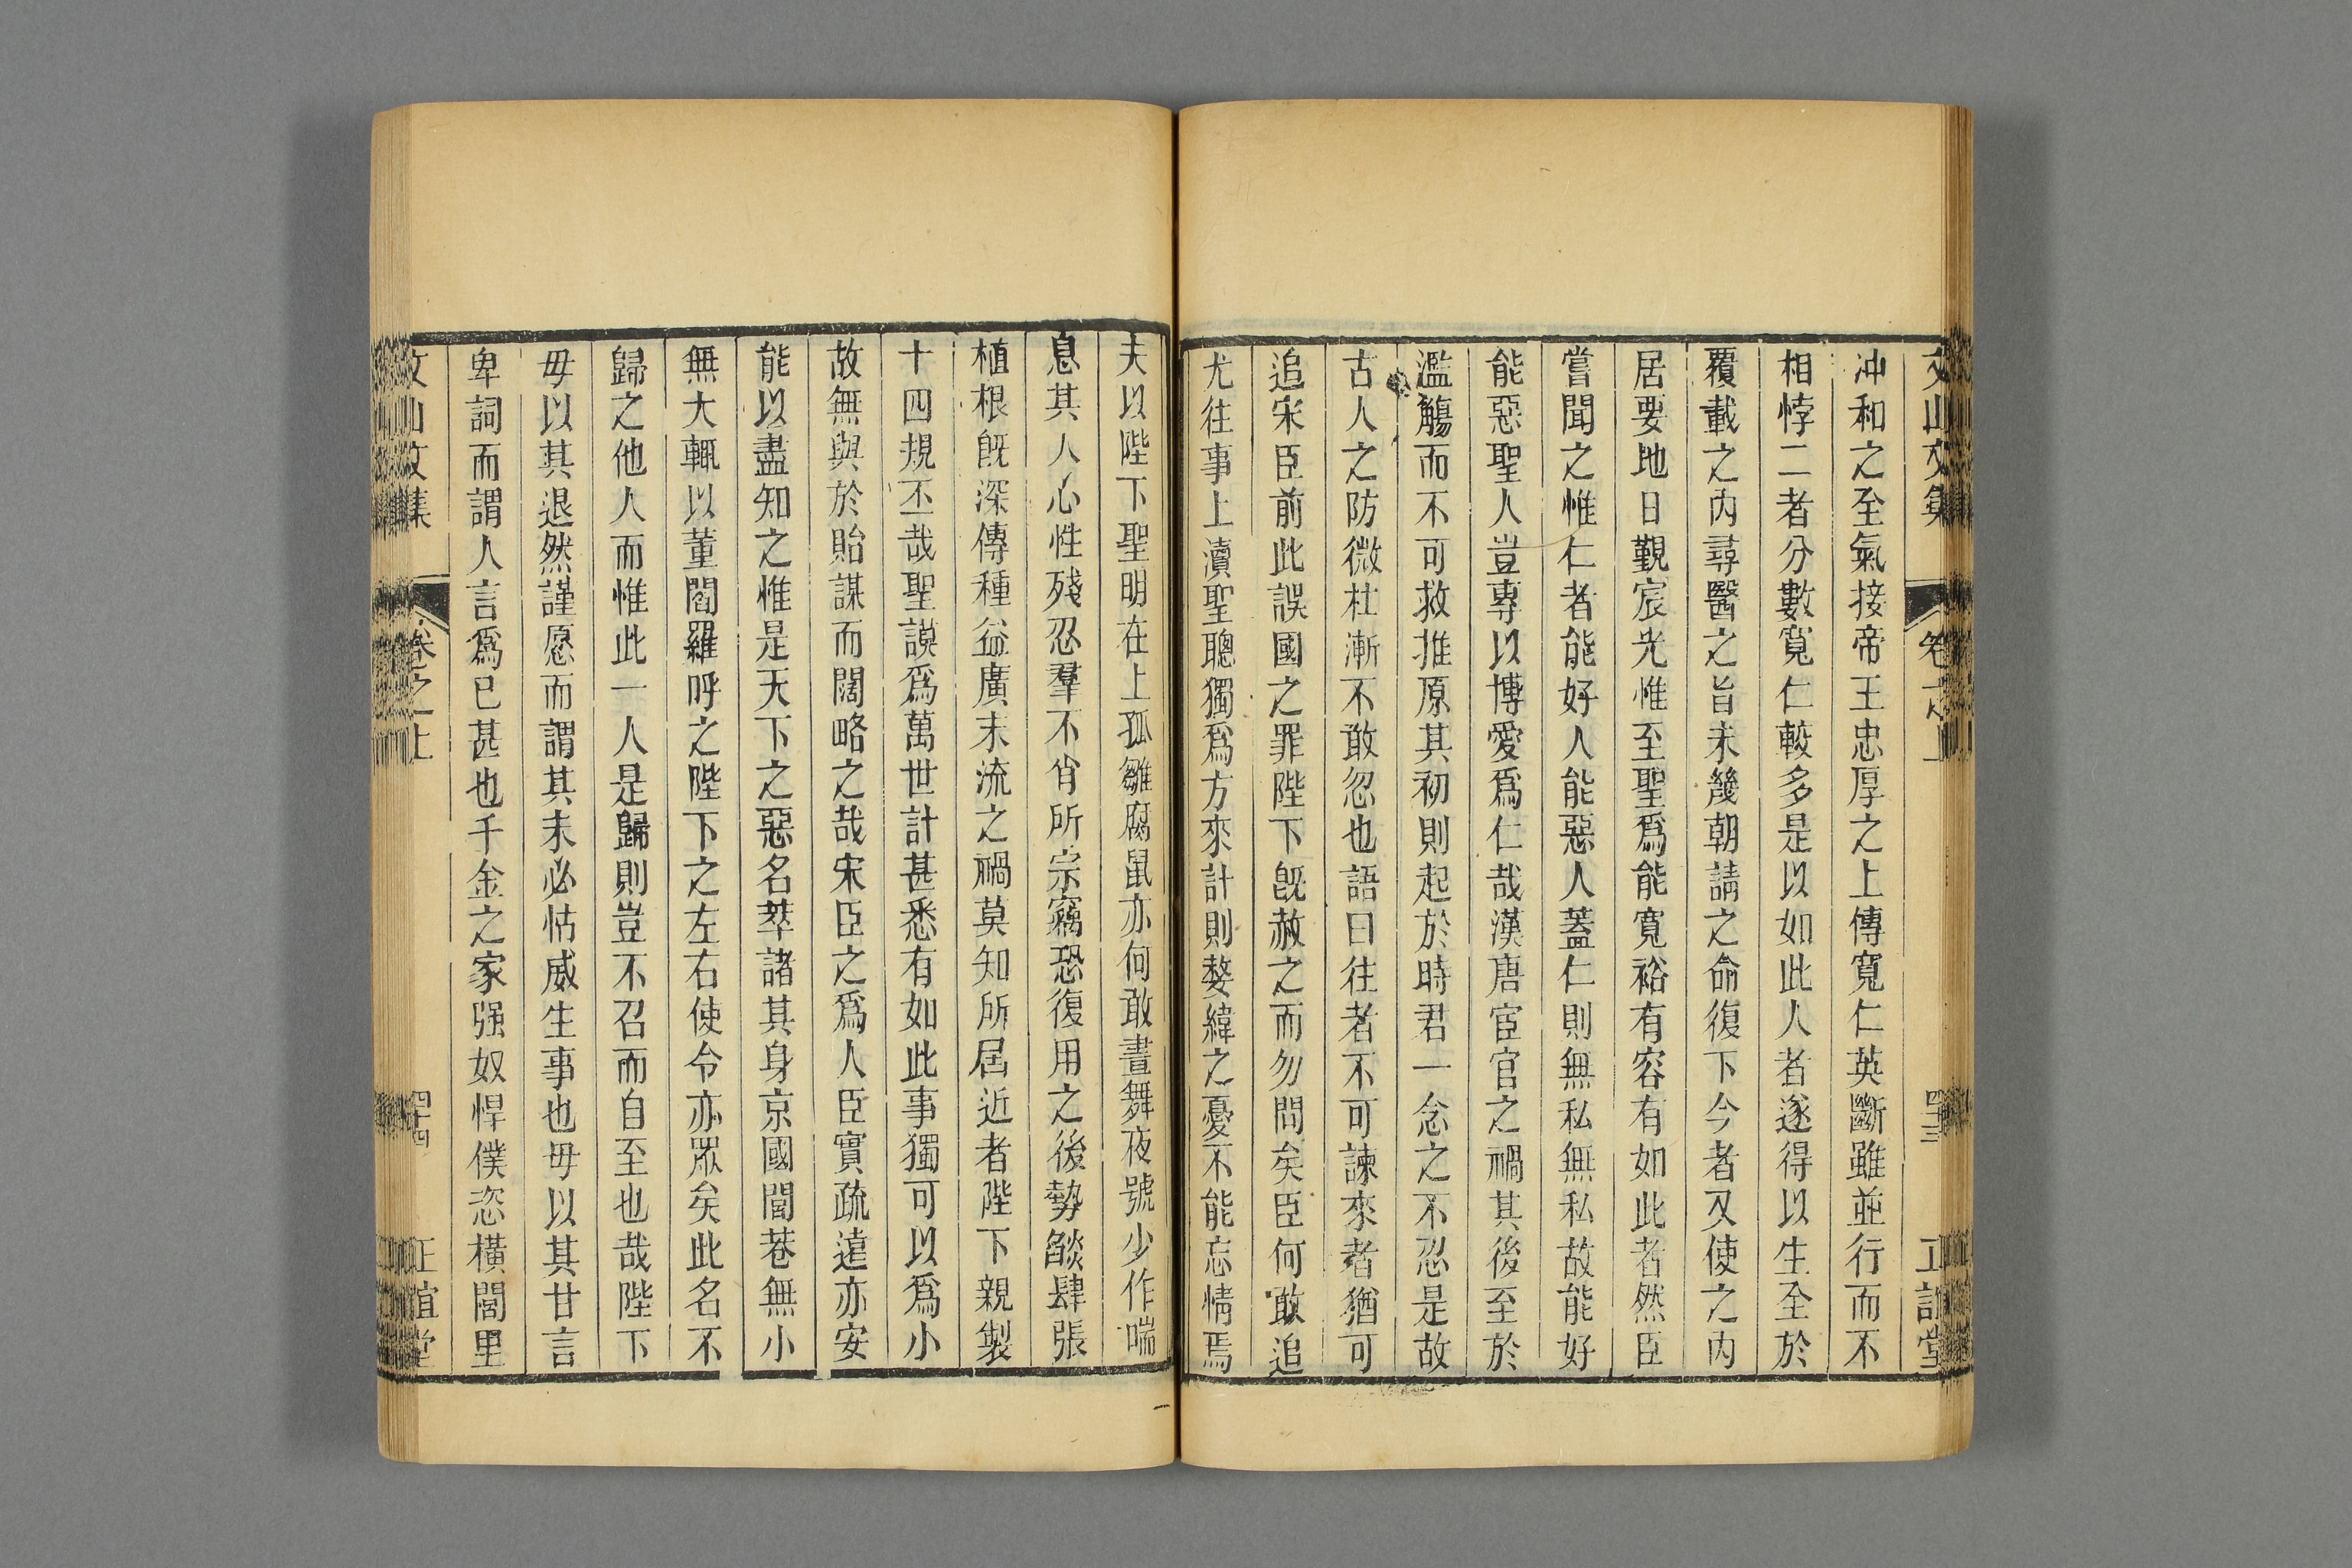 文山文集 卷之上 四十三 正誼堂
冲和之至氣接帝王忠厚之上傳寬仁英斷雖並行而不
相悖二者分數寬仁較多是以如此人者遂得以生全於
覆載之內尋醫之旨未幾朝請之命復下今者又使之內
居要地日覲宸光惟至聖爲能寬裕有容有如此者然臣
嘗聞之惟仁者能好人能惡人蓋仁則無私無私故能好
能惡聖人豈專以博愛爲仁哉漢唐宦官之禍其後至於
濫觴而不可救推原其初則起於時君一念之不忍是故
古人之防微杜漸不敢忽也語曰往者不可諫來者猶可
追宋臣前此誤國之罪陛下旣赦之而勿問矣臣何敢追
尤往事上瀆聖聰獨爲方來計則嫠緯之憂不能忘情焉
夫以陛下聖明在上孤雛腐鼠亦何敢晝舞夜號少作喘
息其人心性殘忍羣不肖所宗竊恐復用之後勢燄肆張
植根旣深傳種益廣末流之禍莫知所屆近者陛下親製
十四規丕哉聖謨爲萬世計甚悉有如此事獨可以爲小
故無與於貽謀而闊略之哉宋臣之爲人臣實疏遠亦安
能以盡知之惟是天下之惡名萃諸其身京國閭巷無小
無大輒以董閻羅呼之陛下之左右使令亦眾矣此名不
歸之他人而惟此一人是歸則豈不召而自至也哉陛下
毋以其退然謹愿而謂其未必怙威生事也毋以其甘言
卑詞而謂人言爲已甚也千金之家强奴悍僕恣橫閭里
文山文集 卷之上 四十四 正誼堂